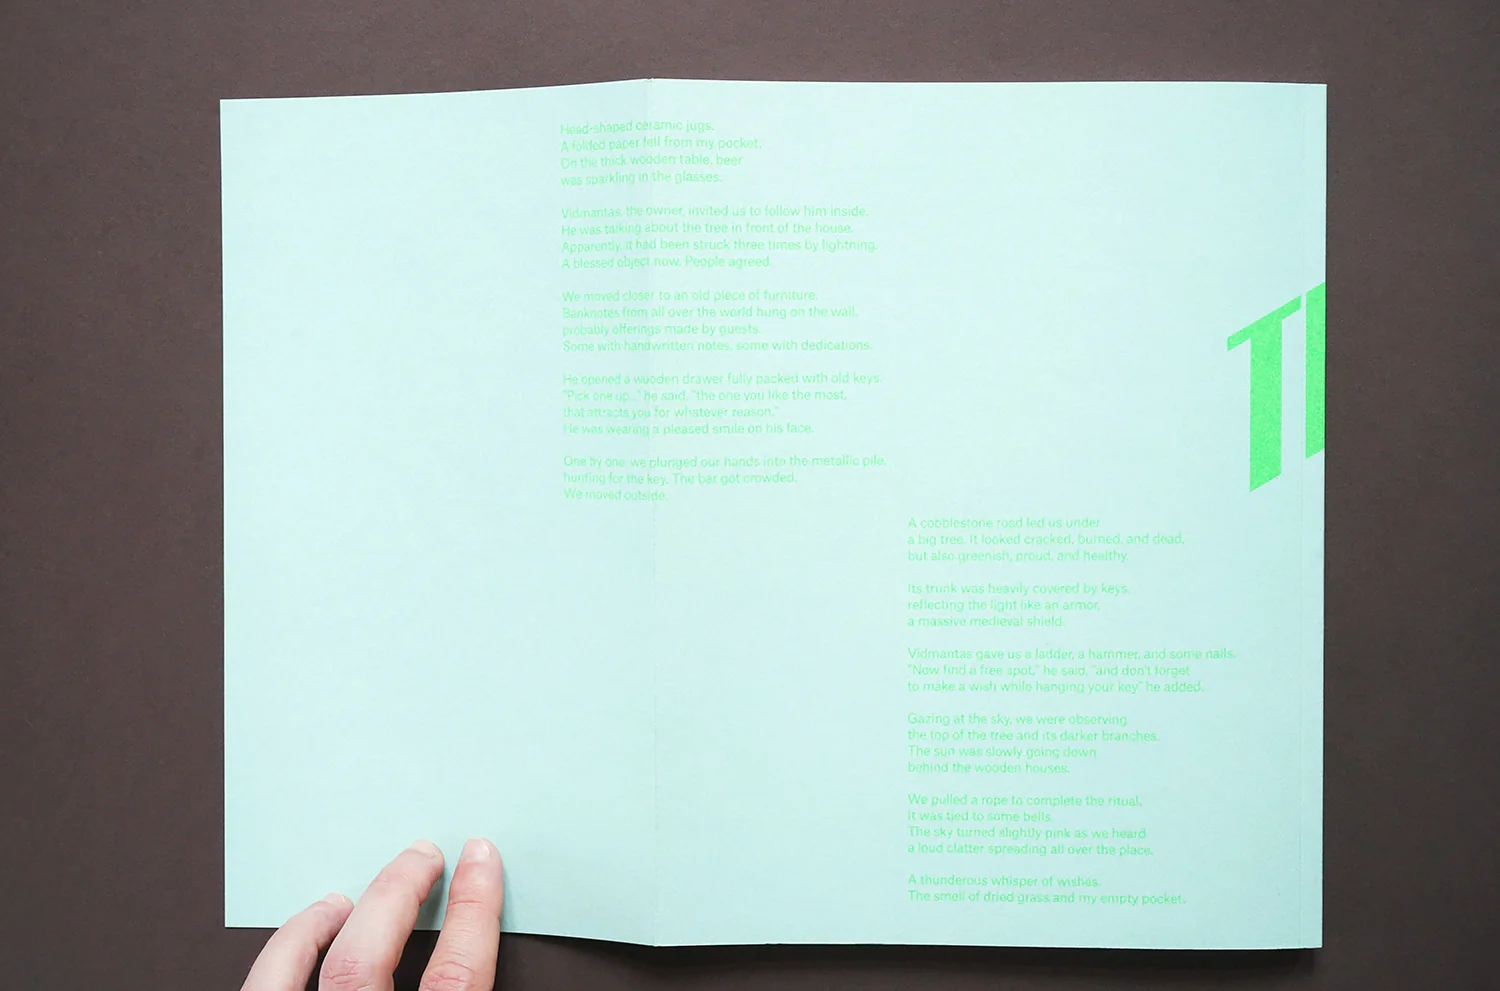 Head-shaped ceramic jugs.
A folded paper fell from my pocket.
On the thick wooden table, beer
was sparkling in the glasses.
Vidmantas, the owner, invited us to follow him inside.
He was talking about the tree in front of the house.
Apparently, it had been struck three times by lightning.
A blessed object now. People agreed.
We moved closer to an old piece of furniture.
Banknotes from all over the world hung on the wall,
probably offerings made by guests.
Some with handwritten notes, some with dedications.
He opened a wooden drawer fully packed with old keys.
"Pick one up..." he said, "the one you like the most,
that attracts you for whatever reason."
He was wearing a pleased smile on his face.
One by one we plunged our hands into the metallic pile,
hunting for the key. The bar got crowded.
We moved outside.
A cobblestone road led us under
a big tree. It looked cracked, burned, and dead,
but also greenish, proud, and healthy.
Its trunk was heavily covered by keys,
reflecting the light like an armor,
a massive medieval shield.
Vidmantas gave us a ladder, a hammer, and some nails.
"Now find a free spot," he said, "and don't forget
to make a wish while hanging your key" he added.
Gazing at the sky, we were observing
the top of the tree and its darker branches.
The sun was slowly going down
behind the wooden houses.
We pulled a rope to complete the ritual,
it was tied to some bells.
The sky turned slightly pink as we heard
a loud clatter spreading all over the place.
A thunderous whisper of wishes.
The smell of dried grass and my empty pocket.